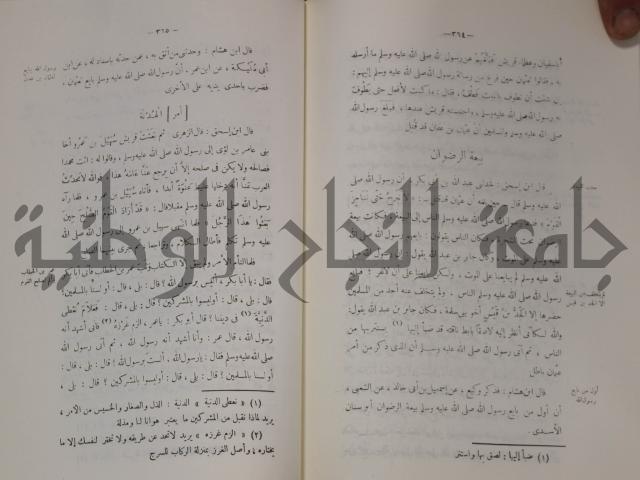 — ٣٦٤ —
أباسفيان وعظماء قريش فبلغهم عن رسول الله صلى الله عليه وسلم ما أرسله
به ؛ فقالوا لعثمان حين فرغ من رسالة رسول الله صلى الله عليه وسلم إليهم :
إن شئت أن تطوف بالبيت فطف ، فقال : ما كنت لأفعل حتى يطوف
به رسول الله صلى الله عليه وسلم ، واحتبسته قريش عندها ، فبلغ رسول الله
صلى الله عليه وسلم والمسلمين أن عثمان بن عفان قد قتل
بيعة الرضوان
قال ابن إسحق : فحدثني عبد الله بن أبي بكر أن رسول الله صلى
الله عليه وسلم قال حين بلغه أن عثمان قد قتل : « لا نبرح حتى نناجز
القوم » فدعا رسول الله صلى الله عليه وسلم الناس إلى البيعة ، فكانت بيعة
الرضوان تحت الشجرة ، فكان الناس يقولون : بايعهم رسول الله صلى الله
عليه وسلم على الموت ، وكان جابر بن عبد الله يقول : إن رسول الله صلى
الله عليه وسلم لم يبايعنا على الموت ، ولكن بايعنا على أن لا نفر ؛ فبايع
رسول الله صلى الله عليه وسلم الناس ، ولم يتخلف عنه أحد من المسلمين
حضرها إلا الجد بن قيس أخو بني سلمة ، فكان جابر بن عبد الله يقول :
والله لكأني أنظر إليه لاصقا بإبط ناقته قد ضبأ إليها (١) يستتر بها من
الناس ، ثم أتى رسول الله صلى الله عليه وسلم أن الذى ذكر من أمر
عثمان باطل
قال ابن هشام : فذكر وكيع ، عن إسمعيل بن أبي خالد ، عن الشعبى ،
أن أول من بايع رسول الله صلى الله عليه وسلم بيعة الرضوان أبو سنان
الأسدى .
لم يتخلف عن البيعة
إلا الجد بن قيس
أول من بايع
رسول الله
(١) ضبأ إليها : لصق بها واستتر
— ٣٦٥ —
قال ابن هشام : وحدثني من أثق به ، عمن حدثه بإسناد له ، عن ابن
أبى مليكة ، عن ابن عمر ، أن رسول الله صلى الله عليه وسلم بايع لعثمان ،
فضرب بإحدى يديه على الأخرى
[ أمر ] الهدنة
قال ابن إسحق : قال الزهرى : ثم بعثت قريش سهيل بن عمرو أخا
بنى عامر بن لؤى إلى رسول الله صلى الله عليه وسلم ، وقالوا له : ائت محمدا
فصالحه ولا يكن فى صلحه إلا أن يرجع عنا عامه هذا ، فوالله لا تحدث
العرب عنا أنه دخلها علينا عنوة أبدا ، فأتاه سهيل بن عمرو ، فلما رآه
رسول الله صلى الله عليه وسلم مقبلا قال : « قد أراد القوم الصلح حين
بعثوا هذا الرجل » فلما انتهى سهيل بن عمرو إلى رسول الله صلى الله
عليه وسلم تكلم فأطال الكلام ، وتراجعا ، ثم جرى بينهما الصلح
فلما التأم الأمر ولم يبق إلا الكتاب وثب عمر بن الخطاب فأتى أبا بكر
فقال : يا أبا بكر ، أليس برسول الله ؟ قال : بلى ، قال : أولسنا بالمسلمين ؟
قال : بلى ، قال : أوليسوا بالمشركين ؟ قال : بلى ، قال : فعلام نعطى
الدنية (١) فى ديننا ؟ قال أبو بكر : يا عمر ، الزم غرزه (٢) فانى أشهد أنه
رسول الله ، قال عمر : وأنا أشهد أنه رسول الله ، ثم أتى رسول الله
صلى الله عليه وسلم فقال : يا رسول الله ، ألست برسول الله ؟ قال : بلى ، قال :
أولسنا بالمسلمين ؟ قال : بلى ، قال : أوليسوا بالمشركين ؟ قال : بلى ،
رسول الله يبايع
لعثمان بن عفان
عمر بن الخطاب
صلح القوم
(١) « نعطى الدنية » الدنية : الذل والصغار والخسيس من الأمر ،
يريد لماذا نقبل من المشركين ما يعتبر هوانا لنا ومذلة
(٢) « الزم غرزه » يريد لا تحد عن طريقه ولا تختر لنفسك إلا ما
يختاره ، وأصل الغرز بمنزلة الركاب للسرج
جامعة النجاح الوطنية